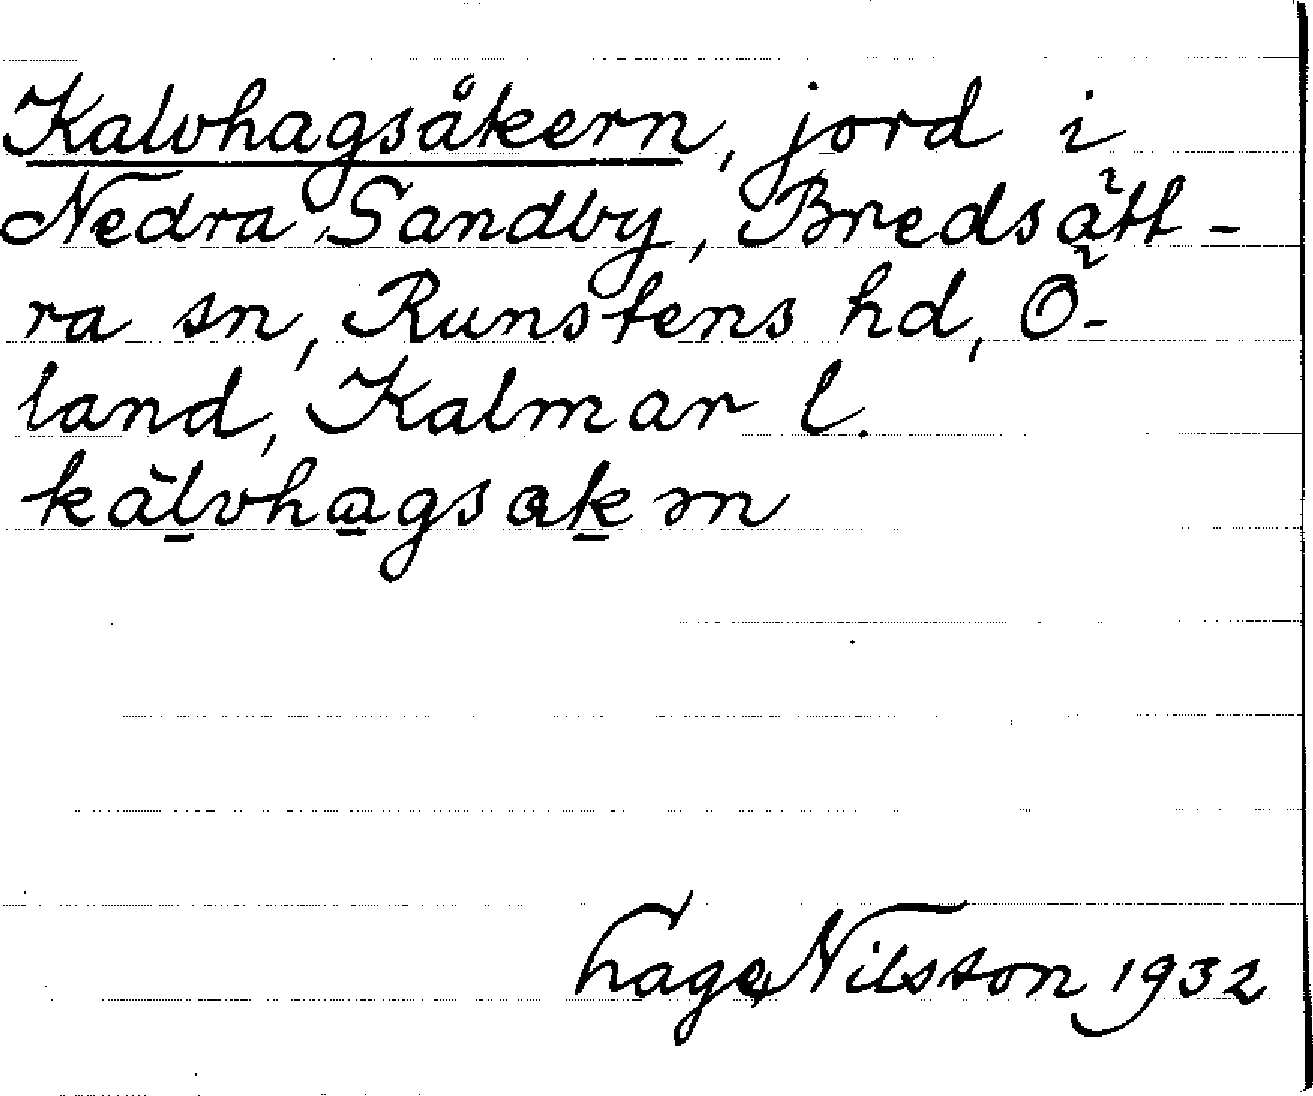 Kalvhagsåkern, jord i
Nedra Sandby, Bredsätt-
ra sn, Runstens hd, Ö-
land, Kalmar l.
kälvhagsakɘn
Hage Nilsson 1932